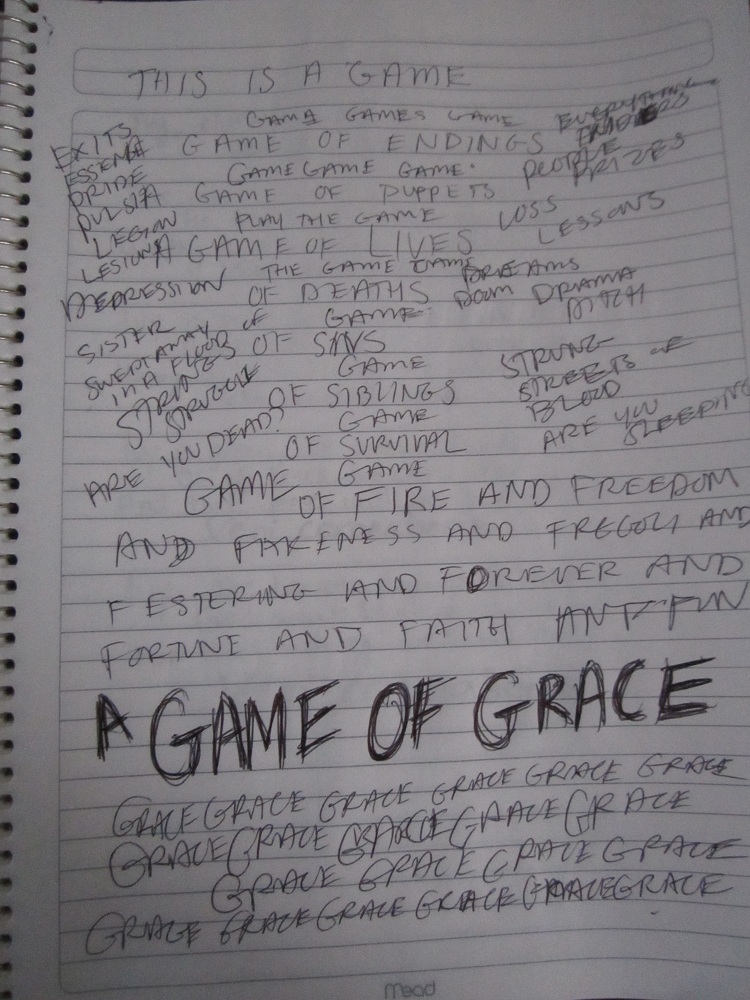 THIS IS A GAME
GAMA GAMES GAME EVERYTHING
EXITS GAME OF ENDINGS
ESSENCE GAME GAME GAME. PEOPLE PRIZES
PRIDE GAME OF PUPPETS
PLAY THE GAME LOSS
LEGION A GAME OF LIVES LESSONS
LESION THE GAME GAME DREAMS
DEPRESSION OF DEATHS DOOM DRAMA
SISTER GAME
SWEPT AWAY OF SINS
IN A FLOOD OF GAME STRUNG
STRINGS OF SIBLINGS STREETS OF
STRUGGLE GAME BLOOD
ARE YOU DEAD? OF SURVIVAL ARE YOU
GAME SLEEPING
GAME OF FIRE AND FREEDOM
AND FAKENESS AND FREGOLI AND
FESTERING AND FOREVER AND
FORTUNE AND FAITH AND FUN
A GAME OF GRACE
GRACE GRACE GRACE GRACE GRACE GRACE
GRACE GRACE GRACE GRACE GRACE
GRACE GRACE GRACE GRACE
GRACE GRACE GRACE GRACE GRACE GRACE
Mead